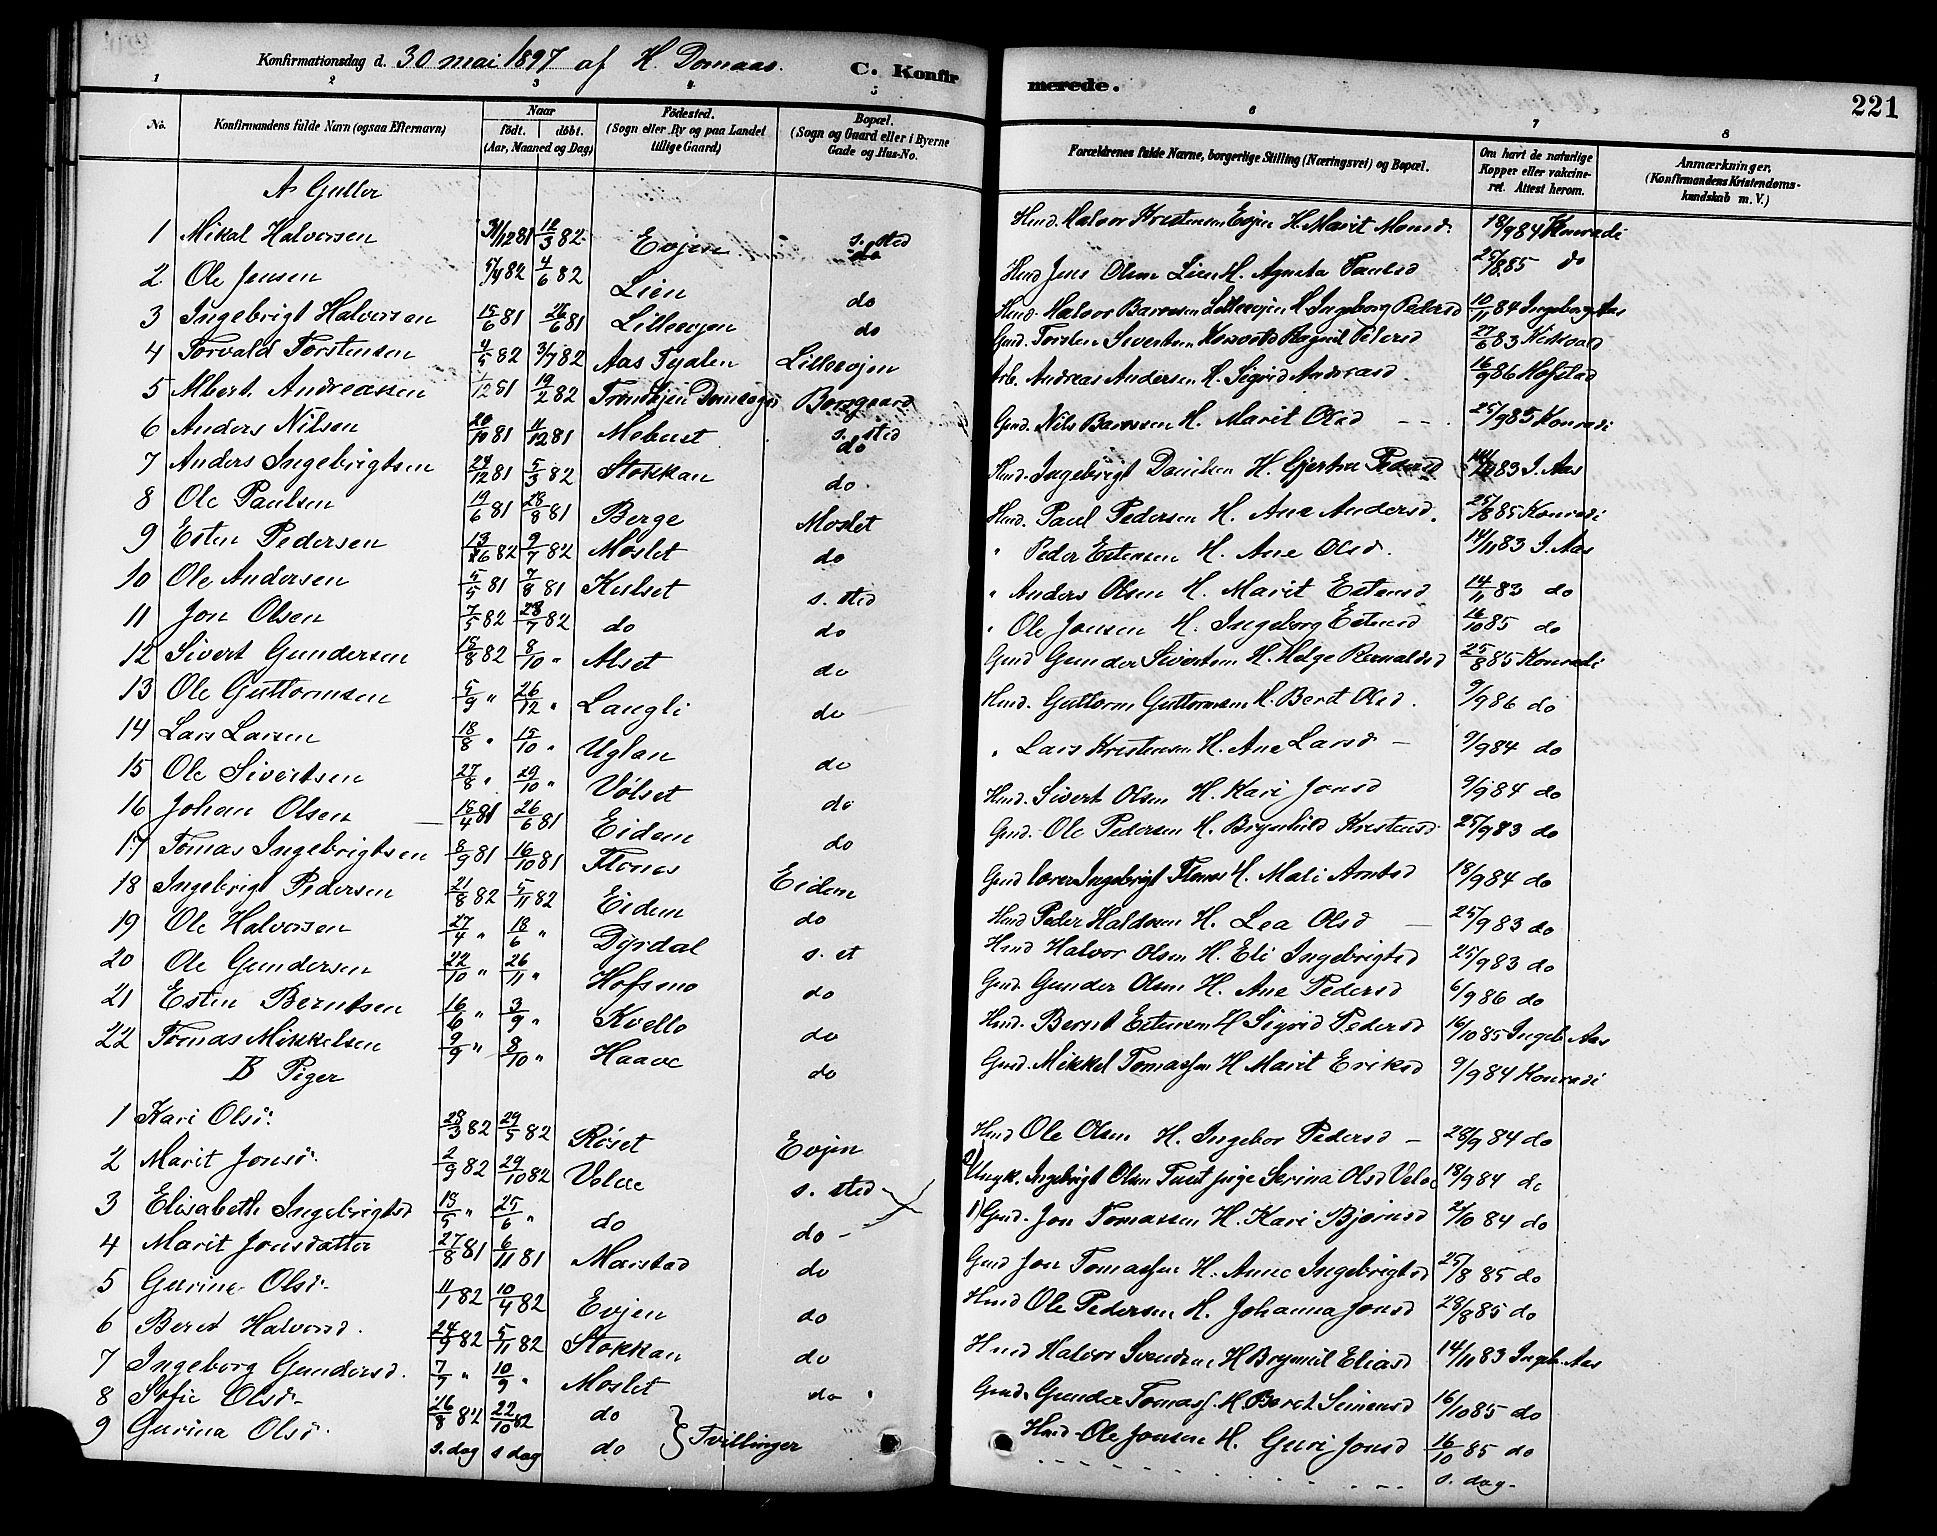 Konfirmationsdag d. 30 mai 1897 af H. Domaas. C. Konfirmerede. 221
1 2 3 4 5 6 7 8
No. Konfirmandens fulde Navn (ogsaa Efternavn) Naar födt. döbt. (Aar, Maaned og Dag) Födested. (Sogn eller By og paa Landet tillige Gaard) Bopæl. (Sogn og Gaard eller i Byerne Gade og Hus-No. Forældrenes fulde Navne, borgerlige Stilling (Næringsvei) og Bopæl. Om havt de naturlige Kopper eller vakcineret. Attest herom. Anmærkninger. (Konfirmandens Kristendomskundskab m. V.)
A Gutter
1 Mikal Halvorsen 31/12 81 12/3 82 Evjen s. sted Hmd. Halvor Kristensen Evjen H. Marit Monsd. 18/9 84 Konradi
2 Ole Jensen 5/4 82 4/6 82 Lien do Hmd Jens Olsen Lien H. Agneta Paulsd 25/8 85 do
3 Ingebrigt Halvorsen 15/6 81 26/6 81 Lilleevjen do Hmd. Halvor Baroosen Lilleevjen H. Ingeborg Pedersd 10/11 84 Ingeborg Aas
4 Torvald Torstensen 4/5 82 3/7 82 Aas Tydalen Lilleevjen Gmd. Torsten Sivertsen H. Pedersd 27/6 83 Kirkvold
5 Albert Andreassen 1/12 81 19/2 82 Trondhjem Domsogn Borsgaard Arb. Andreas Andersen H. Sigrid Andreasd 16/9 86 Hofstad
6 Anders Nilsen 20/10 81 11/12 81 Mebust s. sted Gmd. Nils Baroosen H. Marit Olsd 25/9 85 Konradi
7 Anders Ingebrigtsen 24/12 81 5/3 82 Stokkan do Hmd. Ingebrigt Danielsen H. Gjertru Pedersd 83 I. Aas
8 Ole Paulsen 19/6 81 28/8 81 Berge Moslet Hmd. Paul Pedersen H. Ane Andersd. 25/8 85 Konradi
9 Esten Pedersen 13/6 82 9/7 82 Moslet do " Peder Estensen H. Ane Olsd. 14/11 83 I. Aas
10 Ole Andersen 5/5 81 7/8 81 Kulset s. sted " Anders Olsen H. Marit Estensd 14/11 83 do
11 Jon Olsen 7/5 82 23/7 82 do do " Ole Jonsen H. Ingeborg Estensd 16/10 85 do
12 Sivert Gundersen 13/8 82 8/10 " Alset do Gmd Gunder Sivertsen H. Helge Bernaldsd 25/8 85 Konradi
13 Ole Guttormsen 5/9 " 26/12 " Langli do Hmd. Guttorm Guttormsen H. Berit Olsd. 9/9 86 do
14 Lars Larsen 18/8 " 15/10 " Uglan do " Lars Kristensen H. Ane Larsd 9/9 84 do
15 Ole Sivertsen 27/8 " 29/10 " Völset do Hmd. Sivert Olsen H. Kari Jonsd 9/9 84 do
16 Johan Olsen 18/4 81 26/6 81 Eidem do Gmd. Ole Pedersen H. Brynhild Kristensd 25/9 83 do
17 Tomas Ingebrigtsen 8/9 81 16/10 81 Flones Eidem Gmd lærer Ingebrigt Flones H. Mali Arntsd 18/9 84 do
18 Ingebrigt Pedersen 21/8 82 5/11 82 Eidem do Hmd Peder Haldosen H. Lea Olsd 25/9 83 do
19 Ole Halvorsen 27/4 " 18/6 " Dyrdal s. st Hmd Halvor Olsen H. Eli Ingebrigtsd 25/9 83 do
20 Ole Gundersen 22/10 " 26/11 " Hofsmo do Gmd. Gunder Olsen H. Ane Pedersd 6/9 86 do
21 Esten Berntsen 16/6 " 3/9 " Kvello do Hmd. Bernt Estensen H Sigrid Pedersd 16/10 85 Ingeb. Aas
22 Tomas Mikkelsen 9/9 " 8/10 " Haave do Gmd. Mikkel Tomassen H Marit Eriksd 9/9 84 Konradi
B Piger
1 Kari Olsd: 28/3 82 29/5 82 Röset Evjen Hmd Ole Olsen H. Ingebor Pedersd 28/9 84 do
2 Marit Jonsd. 2/9 82 29/10 82 Velve s. sted 2) Ungk. Ingebrigt Olsen Tust pige Serina Olsd Velve 18/9 84 do
3 Elisabeth Ingebrigtsd 13/5 " 25/6 " do do 1) Gmd. Jon Tomassen H. Kari Bjørnsd 2/10 84 do
4 Marit Jonsdatter 27/8 81 6/11 81 Marstad do Gmd Jon Tomassen H. Anne Ingebrigtsd 25/8 85 do
5 Gurine Olsd. 11/1 82 10/4 82 Evjen do Hmd Ole Pedersen H. Johanna Jonsd 28/8 85 do
6 Beret Halvorsd. 24/9 82 5/11 82 Stokkan do Hmd Halvor Svendsen H Brynil Eliasd 14/11 83 Ingeb. Aas
7 Ingeborg Gundersd. 7/7 " 10/9 " Moslet do Gmd. Gunder Tomass. H Beret Simensd 16/10 85 do
8 Sofie Olsd. 26/8 82 22/10 82 do Hmd Ole Jonsen H. Guri Jonsd 16/10 85 do
9 Gurina Olsd. s. dag s dag do } Tvillinger s. dag.